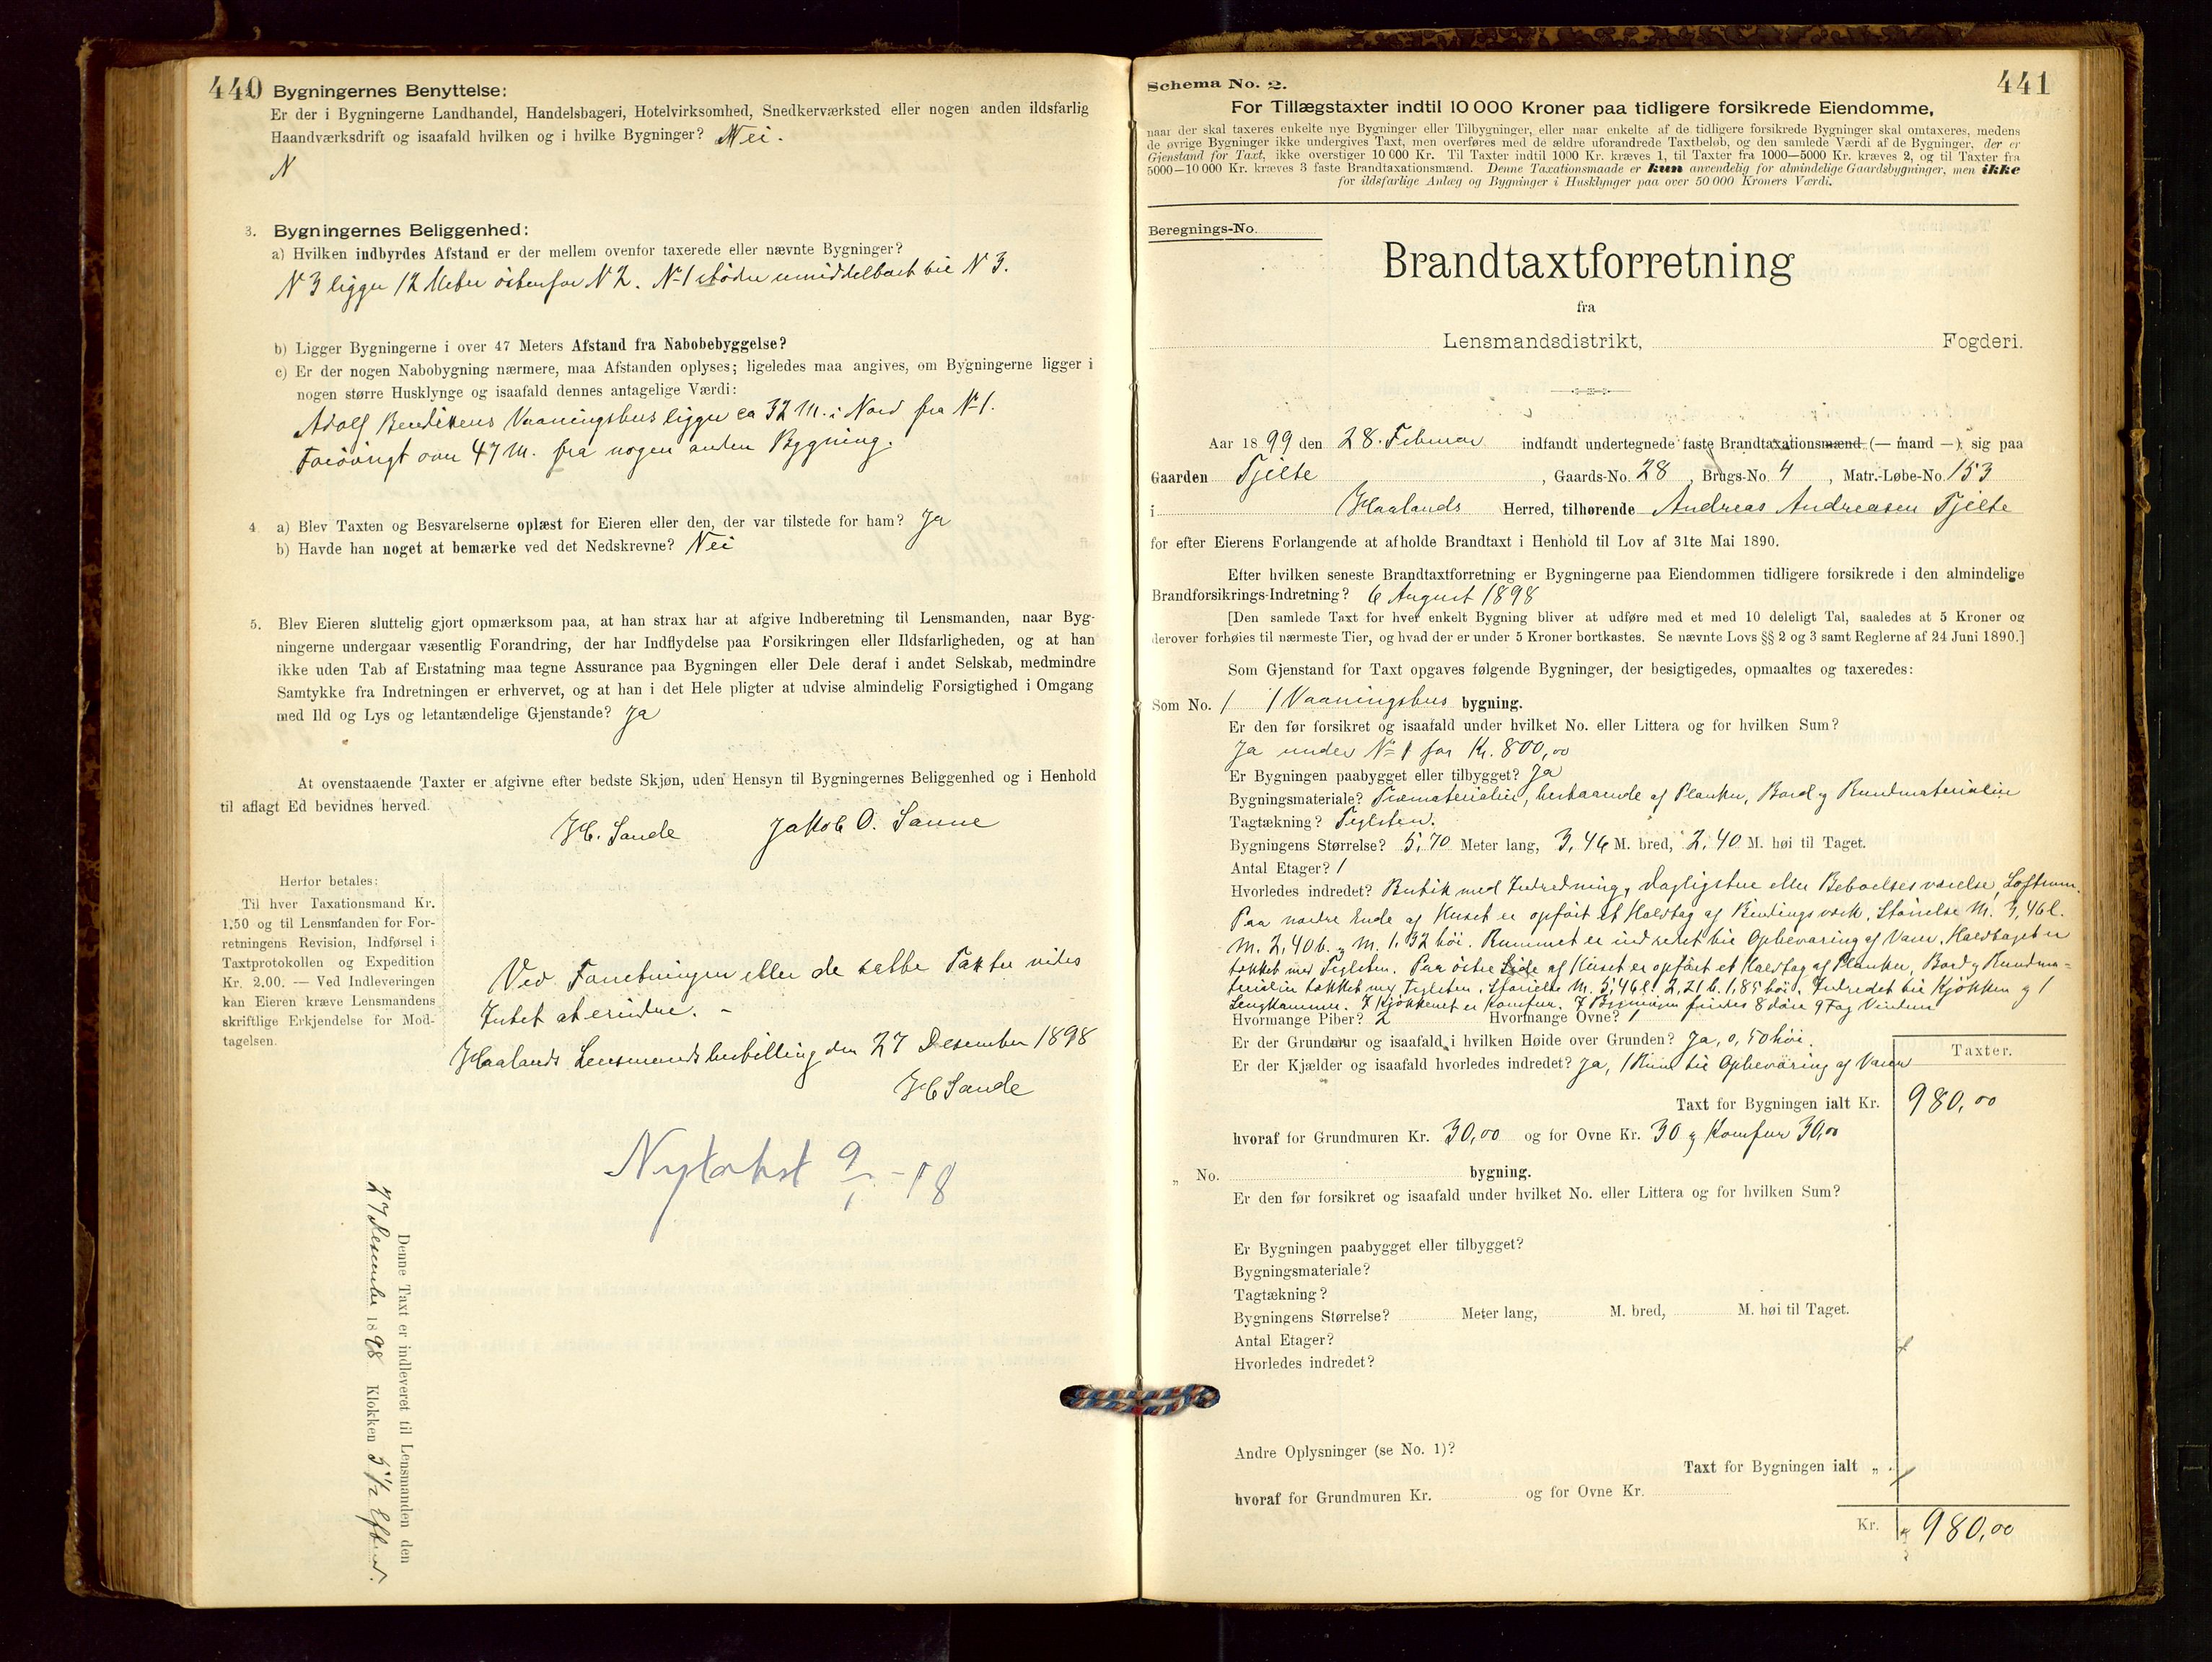 440 Bygningernes Benyttelse:
Er der i Bygningerne Landhandel, Handelsbageri, Hotelvirksomhed, Snedkerværksted eller nogen anden ildsfarlig
Haandværksdrift og isaafald hvilken og i hvilke Bygninger? Nei.
N
3. Bygningernes Beliggenhed:
a) Hvilken indbyrdes Afstand er der mellem ovenfor taxerede eller nævnte Bygninger?
N 3 ligger 12 Meter östenfor N 2. N 1 støder umiddelbart til N 3.
b) Ligger Bygningerne i over 47 Meters Afstand fra Nabobebyggelse?
c) Er der nogen Nabobygning nærmere, maa Afstanden oplyses; ligeledes maa angives, om Bygningerne ligger i
nogen større Husklynge og isaafald dennes antagelige Værdi:
Adolf Bendiksens Vaaningshus ligger ca 32 M. i Nord fra N 1.
Forövrigt over 47 M. fra nogen anden Bygning.
4. a) Blev Taxten og Besvarelserne oplæst for Eieren eller den, der var tilstede for ham? Ja
b) Havde han noget at bemærke ved det Nedskrevne? Nei
5. Blev Eieren sluttelig gjort opmærksom paa, at han strax har at afgive Indberetning til Lensmanden, naar Byg-
ningerne undergaar væsentlig Forandring, der har Indflydelse paa Forsikringen eller Ildsfarligheden, og at han
ikke uden Tab af Erstatning maa tegne Assurance paa Bygningen eller Dele deraf i andet Selskab, medmindre
Samtykke fra Indretningen er erhvervet, og at han i det Hele pligter at udvise almindelig Forsigtighed i Omgang
med Ild og Lys og letantændelige Gjenstande? Ja
At ovenstaaende Taxter er afgivne efter bedste Skjøn, uden Hensyn til Bygningernes Beliggenhed og i Henhold
til aflagt Ed bevidnes herved.
H. Sande Jakob O. Sanne
Herfor betales:
Til hver Taxationsmand Kr.
1.50 og til Lensmanden for For-
retningens Revision, Indførsel i
Taxtprotokollen og Expedition
Kr. 2.00. — Ved Indleveringen
kan Eieren kræve Lensmandens
skriftlige Erkjendelse for Mod-
tagelsen.
Ved Forretningen eller de satte Takster vides
Intet at erindre. -
Haalands Lensmandsbestilling den 27 Desember 1898
H Sande
Nytakst 9/1 - 18
Denne Taxt er indleveret til Lensmanden den
27 Desember 1898 Klokken 5 1/2 Efterm.
Schema No. 2. 441
For Tillægstaxter indtil 10 000 Kroner paa tidligere forsikrede Eiendomme,
naar der skal taxeres enkelte nye Bygninger eller Tilbygninger, eller naar enkelte af de tidligere forsikrede Bygninger skal omtaxeres, medens
de øvrige Bygninger ikke undergives Taxt, men overføres med de ældre uforandrede Taxtbeløb, og den samlede Værdi af de Bygninger, der er
Gjenstand for Taxt, ikke overstiger 10 000 Kr. Til Taxter indtil 1000 Kr. kræves 1, til Taxter fra 1000—5000 Kr. kræves 2, og til Taxter fra
5000—10 000 Kr. kræves 3 faste Brandtaxationsmænd. Denne Taxationsmaade er kun anvendelig for almindelige Gaardsbygninger, men ikke
for ildsfarlige Anlæg og Bygninger i Husklynger paa over 50 000 Kroners Værdi.
Beregnings-No.
Brandtaxtforretning
fra
Lensmandsdistrikt, Fogderi.
Aar 1899 den 28. Februar indfandt undertegnede faste Brandtaxationsmænd (— mand —) sig paa
Gaarden Tjelte, Gaards-No. 28, Brugs-No. 4, Matr.-Løbe-No. 153
i Haalands Herred, tilhørende Andreas Andreasen Tjelte
for efter Eierens Forlangende at afholde Brandtaxt i Henhold til Lov af 31te Mai 1890.
Efter hvilken seneste Brandtaxtforretning er Bygningerne paa Eiendommen tidligere forsikrede i den almindelige
Brandforsikrings-Indretning? 6 August 1898
[Den samlede Taxt for hver enkelt Bygning bliver at udføre med et med 10 deleligt Tal, saaledes at 5 Kroner og
derover forhøies til nærmeste Tier, og hvad der er under 5 Kroner bortkastes. Se nævnte Lovs §§ 2 og 3 samt Reglerne af 24 Juni 1890.]
Som Gjenstand for Taxt opgaves følgende Bygninger, der besigtigedes, opmaaltes og taxeredes:
Som No. 1 1 Vaaningshus bygning.
Er den før forsikret og isaafald under hvilket No. eller Littera og for hvilken Sum?
Ja under No 1 for Kr. 800,00
Er Bygningen paabygget eller tilbygget? Ja
Bygningsmateriale? Træmaterialier, bestaaende af Planker, Bord og Rundmaterialier
Tagtækning? Teglsten.
Bygningens Størrelse? 5,70 Meter lang, 3,46 M. bred, 2,40 M. høi til Taget.
Antal Etager? 1
Hvorledes indredet? Butik med Indredning, Dagligstue eller Beboelsesværelse, Loftrum.
Paa nordre Ende af Huset er opført et Halvtag af Bindingsværk, Størrelse M. 3,46 l.
M. 2,40 b. og M. 1,32 höi. Rummet er indredet til Opbevaring af Varer. Halvtaget er
tækket med Teglsten. Paa östre Side af Huset er opført et Halvtag af Planker, Bord og Rundma-
terialier tækket med Teglsten, Størrelse M. 5,46 l. 2,21 b. 1,85 höi. Indredet til Kjökken og 1
Sengkammer. I Kjökkenet er Komfur. I Bygningen findes 8 döre 9 Fag Vinduer
Hvormange Piber? 2 Hvormange Ovne? 1
Er der Grundmur og isaafald i hvilken Høide over Grunden? Ja, 0,50 höi.
Er der Kjælder og isaafald hvorledes indredet? Ja, 1 Rum til Opbevaring af Varer
Taxter.
Taxt for Bygningen ialt Kr. 980,00
hvoraf for Grundmuren Kr. 30,00 og for Ovne Kr. 30 og Komfur 30,00
„ No. bygning.
Er den før forsikret og isaafald under hvilket No. eller Littera og for hvilken Sum?
Er Bygningen paabygget eller tilbygget?
Bygningsmateriale?
Tagtækning?
Bygningens Størrelse? Meter lang, M. bred, M. høi til Taget.
Antal Etager?
Hvorledes indredet?
Andre Oplysninger (se No. 1)?
Taxt for Bygningen ialt „
hvoraf for Grundmuren Kr. og for Ovne Kr.
Kr. 980,00